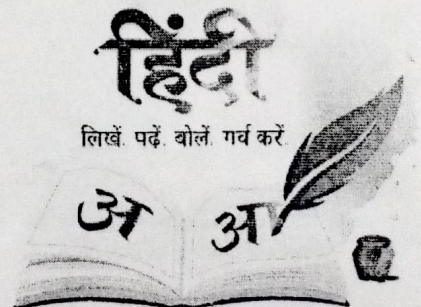 हिंदी
लिखें. पढ़ें. बोलें. गर्व करें.
अ आ